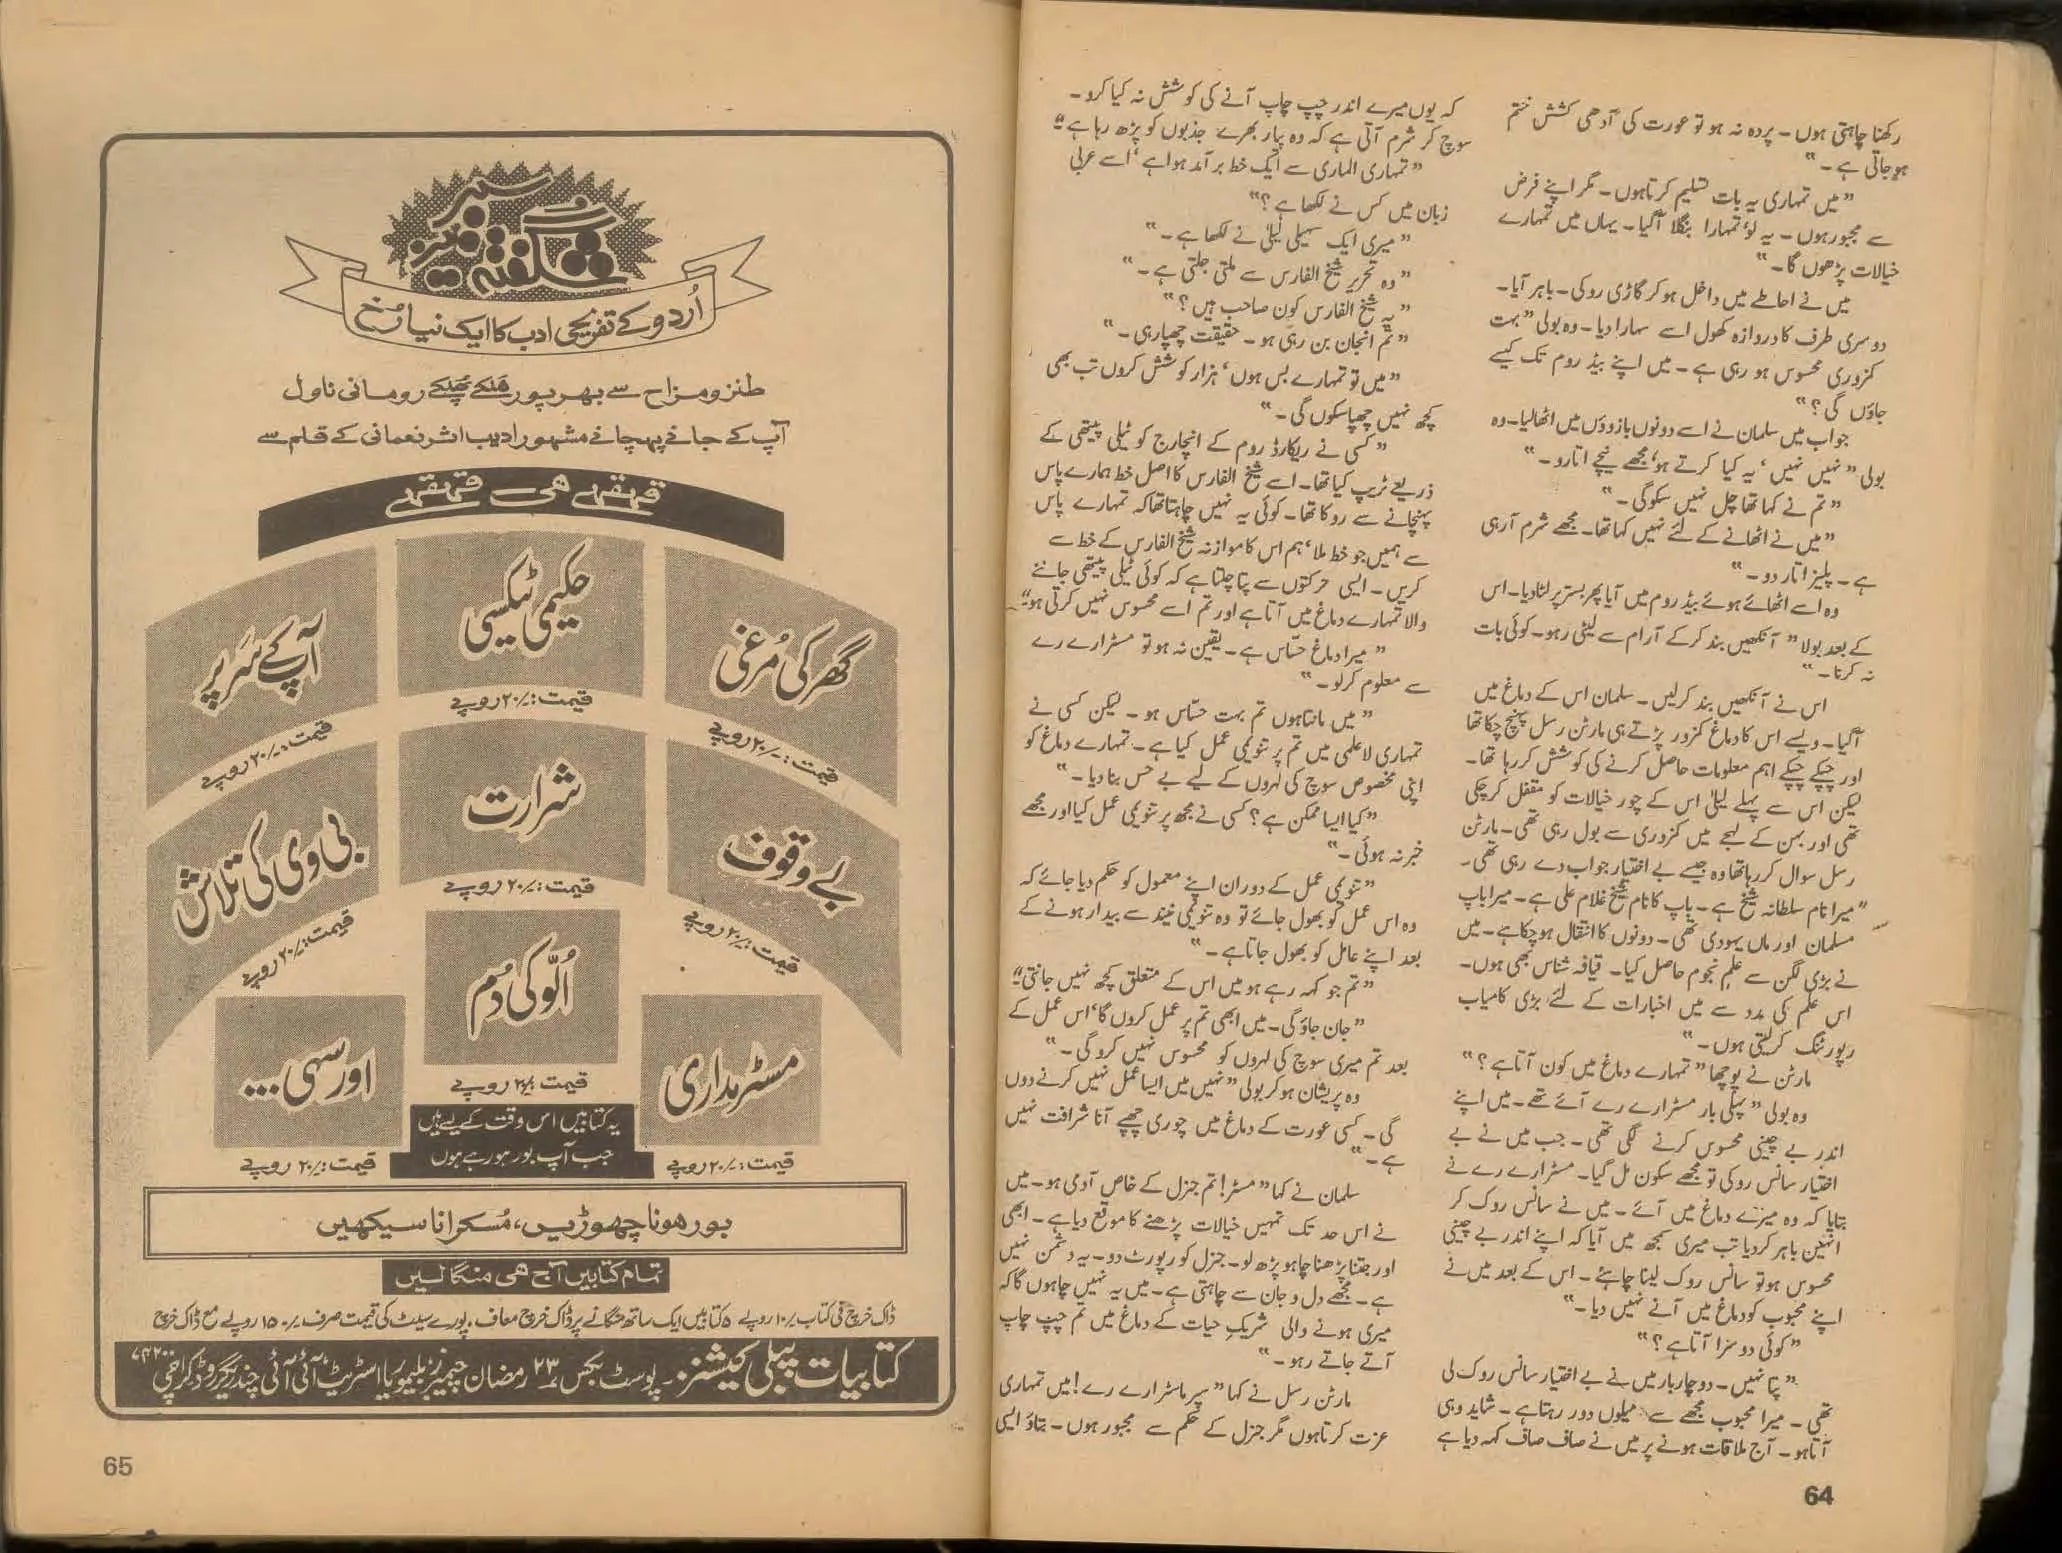 رکھنا چاہتی ہوں۔ پردہ نہ ہو تو عورت کی آدھی کشش ختم
ہوجاتی ہے۔"
"میں تمہاری یہ بات تسلیم کرتاہوں۔ مگر اپنے فرض
سے مجبورہوں۔ یہ لو' تمہارا بنگلا آگیا۔ یہاں میں تمہارے
خیالات پڑھوں گا۔"
میں نے احاطے میں داخل ہوکر گاڑی روکی۔ باہر آیا۔
دوسری طرف کا دروازہ کھول اسے سہارا دیا۔ وہ بولی "بہت
کمزوری محسوس ہو رہی ہے۔ میں اپنے بیڈ روم تک کیسے
جاؤں گی؟"
جواب میں سلمان نے اسے دونوں بازوؤں میں اٹھالیا۔ وہ
بولی "نہیں نہیں' یہ کیا کرتے ہو' مجھے نیچے اتارو۔"
"تم نے کہا تھا چل نہیں سکوگی۔"
"میں نے اٹھانے کے لئے نہیں کہا تھا۔ مجھے شرم آرہی
ہے۔ پلیز اتار دو۔"
وہ اسے اٹھائے ہوئے بیڈ روم میں آیا پھر بستر پر لٹادیا۔ اس
کے بعد بولا "آنکھیں بند کرکے آرام سے لیٹی رہو۔ کوئی بات
نہ کرنا۔"
اس نے آنکھیں بند کرلیں۔ سلمان اس کے دماغ میں
آگیا۔ ویسے اس کا دماغ کمزور پڑتے ہی مارٹن رسل پہنچ چکا تھا
اور چپکے چپکے اہم معلومات حاصل کرنے کی کوشش کررہا تھا۔
لیکن اس سے پہلے لیلیٰ اس کے چور خیالات کو مقفل کرچکی
تھی اور بہن کے لہجے میں کمزوری سے بول رہی تھی۔ مارٹن
رسل سوال کررہا تھا وہ جیسے بے اختیار جواب دے رہی تھی۔
"میرا نام سلطانہ شیخ ہے۔ باپ کا نام شیخ غلام علی ہے۔ میرا باپ
مسلمان اور ماں یہودی تھی۔ دونوں کا انتقال ہوچکا ہے۔ میں
نے بڑی لگن سے علم نجوم حاصل کیا۔ قیافہ شناس بھی ہوں۔
اس علم کی مدد سے میں اخبارات کے لئے بڑی کامیاب
رپورٹنگ کرلیتی ہوں۔"
مارٹن نے پوچھا "تمہارے دماغ میں کون آتا ہے؟"
وہ بولی "پہلی بار مسٹرارے رے آئے تھے۔ میں اپنے
اندر بے چینی محسوس کرنے لگی تھی۔ جب میں نے بے
اختیار سانس روکی تو مجھے سکون مل گیا۔ مسٹرارے رے نے
بتایا کہ وہ میرے دماغ میں آئے۔ میں نے سانس روک کر
انہیں باہر کردیا تب میری سمجھ میں آیا کہ اپنے اندر بے چینی
محسوس ہو تو سانس روک لینا چاہئے۔ اس کے بعد میں نے
اپنے محبوب کو دماغ میں آنے نہیں دیا۔"
"کوئی دوسرا آتا ہے؟"
"پتا نہیں۔ دوچار بار میں نے بے اختیار سانس روک لی
تھی۔ میرا محبوب مجھے سے میلوں دور رہتا ہے۔ شاید وہی
آتا ہو۔ آج ملاقات ہونے پر میں نے صاف صاف کہہ دیا ہے
64
کہ یوں میرے اندر چپ چاپ آنے کی کوشش نہ کیا کرو۔
سوچ کر شرم آتی ہے کہ وہ پیار بھرے جذبوں کو پڑھ رہا ہے"
"تمہاری الماری سے ایک خط برآمد ہوا ہے' اسے عربی
زبان میں کس نے لکھا ہے؟"
"میری ایک سہیلی لیلیٰ نے لکھا ہے۔"
"وہ تحریر شیخ الفارس سے ملتی جلتی ہے۔"
"یہ شیخ الفارس کون صاحب ہیں؟"
"تم انجان بن رہی ہو۔ حقیقت چھپارہی۔"
"میں تو تمہارے بس ہوں' ہزار کوشش کروں تب بھی
کچھ نہیں چھپاسکوں گی۔"
"کسی نے ریکارڈ روم کے انچارج کو ٹیلی پیتھی کے
ذریعے ٹریپ کیا تھا۔ اسے شیخ الفارس کا اصل خط ہمارے پاس
پہنچانے سے روکا تھا۔ کوئی یہ نہیں چاہتا تھا کہ تمہارے پاس
سے ہمیں جو خط ملا' ہم اس کا موازنہ شیخ الفارس کے خط سے
کریں۔ ایسی حرکتوں سے پتا چلتا ہے کہ کوئی ٹیلی پیتھی جاننے
والا تمہارے دماغ میں آتا ہے اور تم اسے محسوس نہیں کرتی ہو"
"میرا دماغ حسّاس ہے۔ یقین نہ ہو تو مسٹرارے رے
سے معلوم کرلو۔"
"میں مانتا ہوں تم بہت حسّاس ہو۔ لیکن کسی نے
تمہاری لاعلمی میں تم پر تنویمی عمل کیا ہے۔ تمہارے دماغ کو
اپنی مخصوص سوچ کی لہروں کے لیے بے حس بنادیا۔"
"کیا ایسا ممکن ہے؟ کسی نے مجھ پر تنویمی عمل کیا اور مجھے
خبر نہ ہوئی۔"
"تنویمی عمل کے دوران اپنے معمول کو حکم دیا جائے کہ
وہ اس عمل کو بھول جائے تو وہ تنویمی نیند سے بیدار ہونے کے
بعد اپنے عامل کو بھول جاتا ہے۔"
"تم جو کہہ رہے ہو میں اس کے متعلق کچھ نہیں جانتی"
"جان جاؤگی۔ میں ابھی تم پر عمل کروں گا' اس عمل کے
بعد تم میری سوچ کی لہروں کو محسوس نہیں کروگی۔"
وہ پریشان ہوکر بولی "نہیں میں ایسا عمل نہیں کرنے دوں
گی۔ کسی عورت کے دماغ میں چوری چھپے آنا شرافت نہیں
ہے۔"
سلمان نے کہا "مسٹر! تم جنرل کے خاص آدمی ہو۔ میں
نے اس حد تک تمہیں خیالات پڑھنے کا موقع دیا ہے۔ ابھی
اور جتنا پڑھنا چاہو پڑھ لو۔ جنرل کو رپورٹ دو۔ یہ دشمن نہیں
ہے۔ مجھے دل و جان سے چاہتی ہے۔ میں یہ نہیں چاہوں گا کہ
میری ہونے والی شریک حیات کے دماغ میں تم چپ چاپ
آتے جاتے رہو۔"
مارٹن رسل نے کہا "سپر ماسٹرارے رے! میں تمہاری
عزت کرتا ہوں مگر جنرل کے حکم سے مجبور ہوں۔ بتاؤ ایسی
شگفتہ سیریز
اُردو کے تفریحی ادب کا ایک نیا رُخ
طنز و مزاح سے بھرپور ہلکے پھلکے رومانی ناول
آپ کے جانے پہچانے مشہور ادیب اثر نعمانی کے قلم سے
قہقہے ھی قہقہے
گھر کی مُرغی
قیمت:۔/۲۰ روپے
حکیمی ٹیکسی
قیمت:۔/۲۰ روپے
آپ کے سَر پر
قیمت:۔/۲۰ روپے
بے وقوف
قیمت:۔/۲۰ روپے
شرارت
قیمت:۔/۲۰ روپے
بی وی کی تلاش
قیمت:۔/۲۰ روپے
اُلّو کی دُم
قیمت ۔/۲۰ روپے
مسٹر مداری
قیمت:۔/۲۰ روپے
اور سہی...
قیمت:۔/۲۰ روپے
یہ کتابیں اس وقت کے لیے ہیں
جب آپ بور ہو رہے ہوں
بور ھونا چھوڑیں، مُسکرانا سیکھیں
تمام کتابیں آج ھی منگا لیں
ڈاک خرچ فی کتاب ۔/۱۰ روپے ۵ کتابیں ایک ساتھ منگانے پر ڈاک خرچ معاف، پورے سیٹ کی قیمت صرف ۔/۱۵۰ روپے مع ڈاک خرچ
کتابیات پبلی کیشنز۔ پوسٹ بکس ۲۳ رمضان چیمبرز بلیموریا اسٹریٹ، آئی آئی چندریگر روڈ کراچی ۷۴۲۰۰
65